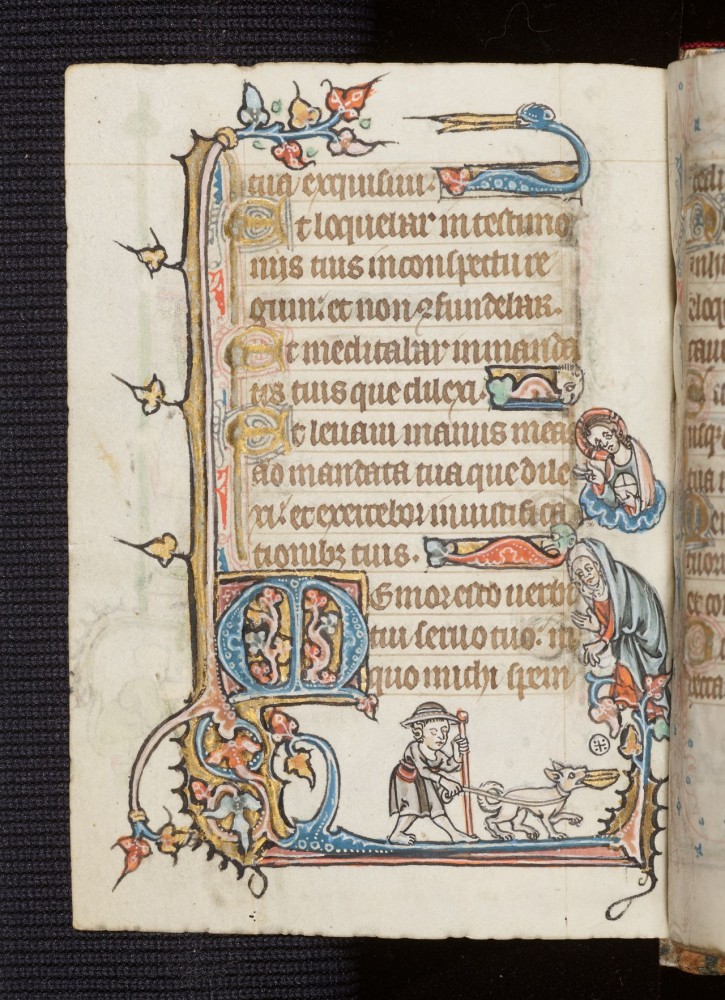 tua exquisiui.
Et loquebar in testimo
niis tuis in conspectu re
gum: et non 9fundebar.
Et meditabar in manda
tis tuis que dilexi.
Et leuaui manus meas
ad mandata tua que dile
xi: et exercebor in iustifica
tionibꝫ tuis.
Memor esto uerbi
tui seruo tuo: in
quo michi spem